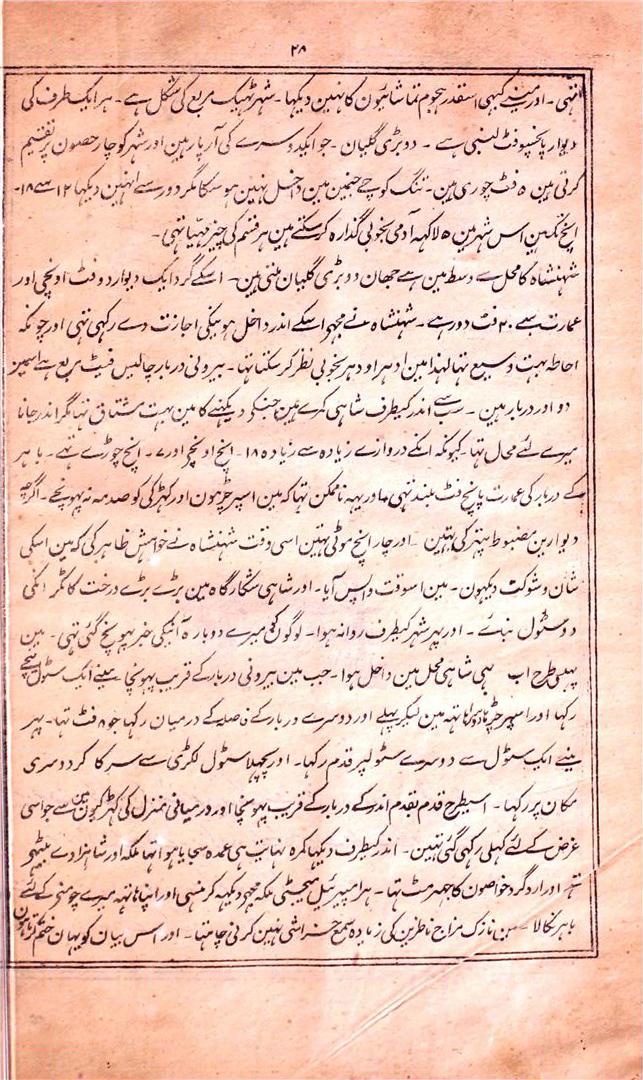 ۲۸
تھی ۔ اور مینے کبھی اسقدر ہجوم تماشائیون کا نہین دیکہا ۔ شہر ٹھیک مربع کی شکل ہے ۔ ہر ایک طرف کی
دیوار پانسو فٹ لنبی ہے ۔ دو بڑی گلیان ۔ جو ایکدوسرے کی آر پار ہین اور شہر کو چار حصون پر تقسیم
کرتی ہین ۵ فٹ چوری ہین ۔ تنگ کوچے جنمین مین داخل نہین ہو سکا مگر دور سے انہین دیکہا ۱۲ سے ۱۸ ۔
انچ تک ہین اس شہر مین ۵ لاکہہ آدمی بخوبی گذارہ کر سکتے ہین ہر قسم کی چیز مہیا تہی ۔
شہنشاہ کا محل وسط مین ہے جہان دو بڑی گلیان ملتی ہین ۔ اسکے گرد ایک دیوار دو فٹ اونچی اور
عمارت سے ۲۰ فٹ دور ہے ۔ شہنشاہ نے مجہو اسکے اندر داخل ہونیکی اجازت دے رکہی تہی اور چونکہ
احاطہ بہت وسیع تہا لہذا مین ادہر اودہر بخوبی نظر کر سکتا تہا ۔ بیرونی دربار چالیس فیٹ مربع ہے اسمین
دو اور دربار ہین ۔ سب سے اندر کیطرف شاہی کمرے ہین جنکے دیکہنے کا مین بہت مشتاق تہا مگر اندر جانا
میرے لئے محال تہا ۔ کیونکہ انکے دروازے زیادہ سے زیادہ ۱۸ ۔ انچ اونچے اور ۷ ۔ انچ چوڑے تہے ۔ باہر
کے دربار کی عمارت پانچ فٹ بلند تہی اور یہہ ناممکن تہا کہ مین اسپر چڑہون اور کہڑکی کو صدمہ نہ پہونچے ۔ اگرچہ
دیوارین مضبوط پتہر کی تہین ۔ اور چار انچ موٹی تہین اسی وقت شہنشاہ نے خواہش ظاہر کی کہ مین اسکی
شان و شوکت دیکہون ۔ مین اسوقت واپس آیا ۔ اور شاہی شکارگاہ مین بڑے بڑے درخت کاٹکر انکی
دو سٹول بنائے ۔ اور پہر شہر کیطرف روانہ ہوا ۔ لوگونکو میرے دوبارہ آنیکی خبر پہونچ گئی تہی ۔ مین
پہلی طرح اب بہی شاہی محل مین داخل ہوا ۔ جب مین بیرونی دربار کے قریب پہونچا مینے ایک سٹول نیچے
رکہا اور اسپر چڑہا دوسرا ہاتہہ مین لیکر پہلے اور دوسرے دربار کے فاصلے کے درمیان رکہا جو ۸ فٹ تہا ۔ پہر
مینے ایک سٹول سے دوسرے سٹول پر قدم رکہا ۔ اور پچہلا سٹول لکڑی سے سرکا کر دوسری
مکان پر رکہا ۔ اسیطرح قدم بقدم اندر کے دربار کے قریب پہونچا اور درمیانی منزل کی کہڑکیون سے جو اسی
غرض کے لئے کہلی رکہی گئی تہین ۔ اندر کیطرف دیکہا کمرہ نہایت ہی عمدہ سجایا ہوا تہا ملکہ اور شاہزادے بیٹہے
تہے اور ارد گرد خواصون کا جہرمٹ تہا ۔ ہر امپیریل میجسٹی ملکہ مجہے دیکہہ کر ہنسی اور اپنا ہاتہہ میرے چومنے کے لئے
باہر نکالا ۔ مین نازک مزاج ناظرین کی زیادہ سمع خراشی نہین کرنی چاہتا ۔ اور اس بیان کو یہان ختم کرتا ہون